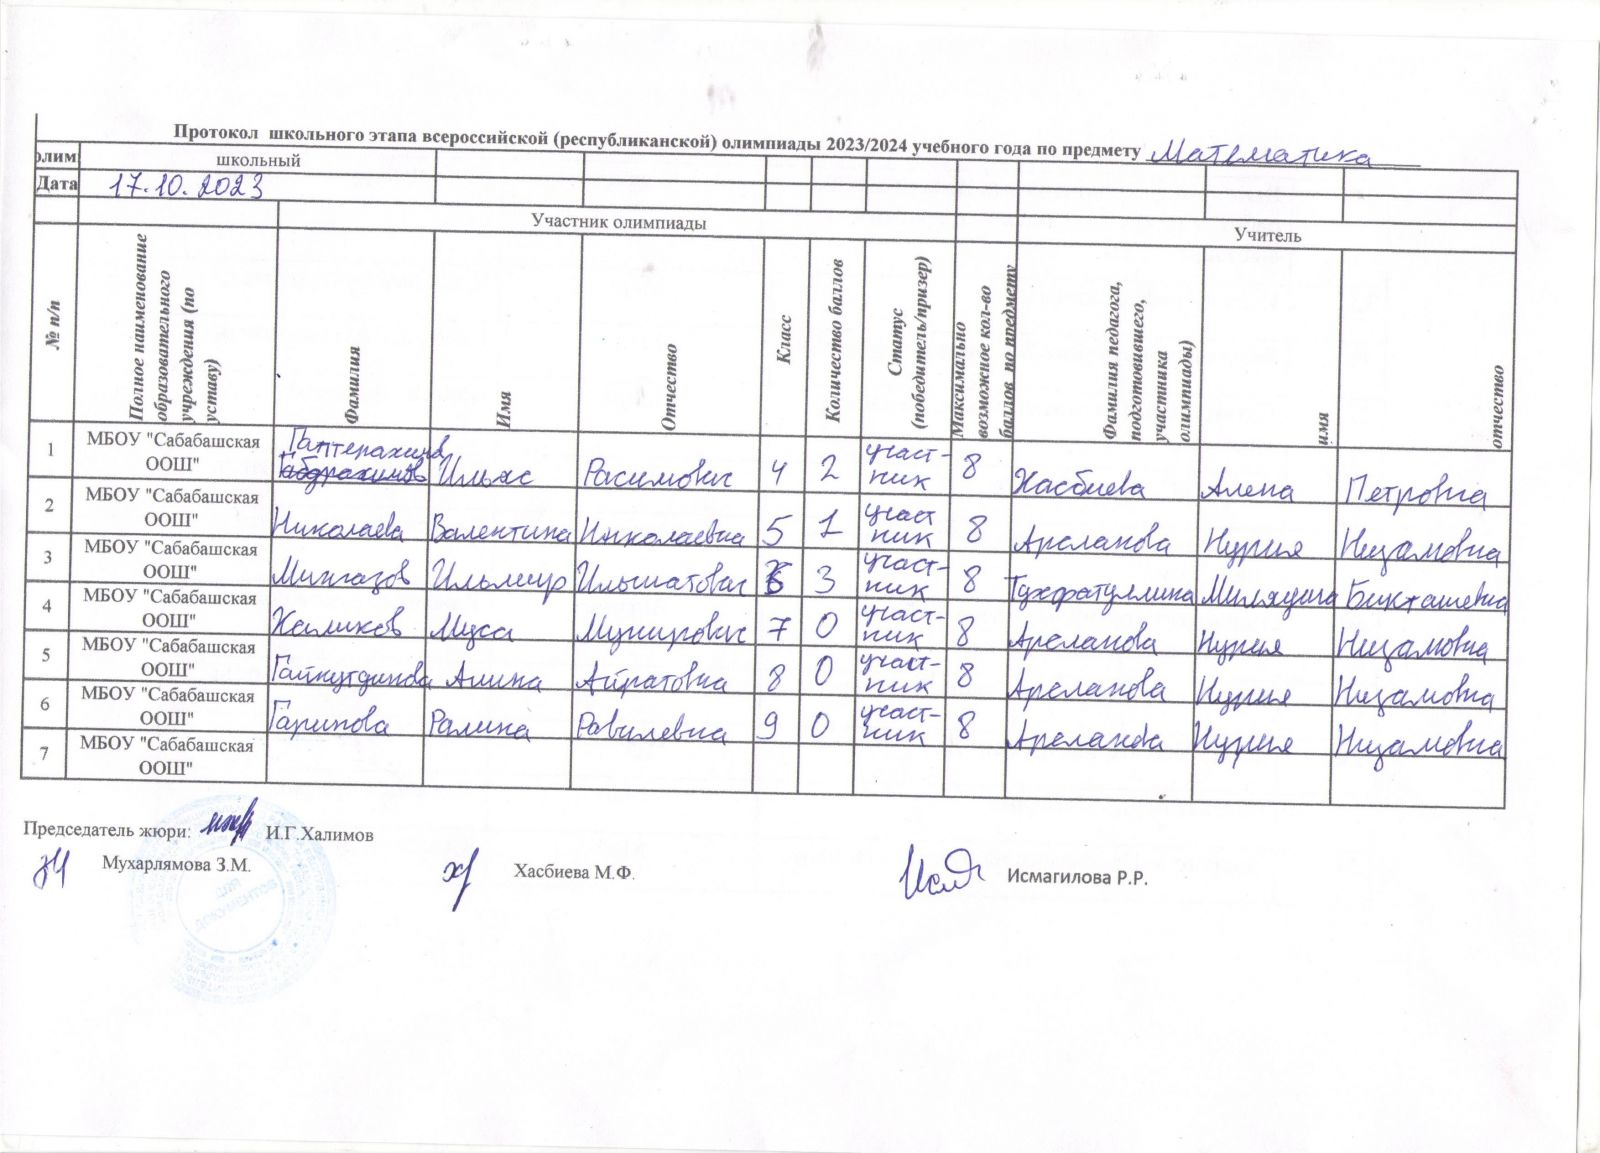 Протокол школьного этапа всероссийской (республиканской) олимпиады 2023/2024 учебного года по предмету Математика
олим школьный
Дата 17.10.2023
Участник олимпиады Учитель
№ п/п Полное наименование образовательного учреждения (по уставу) Фамилия Имя Отчество Класс Количество баллов Статус (победитель/призер) Максимально возможное кол-во баллов по предмету Фамилия педагога, подготовившего, участника олимпиады) имя отчество
1 МБОУ "Сабабашская ООШ" Ильяс Расимович 4 2 участ-ник 8 Хасбиева Алена Петровна
2 МБОУ "Сабабашская ООШ" Николаева Валентина Николаевна 5 1 участ ник 8 Арсланова Нурия Низамовна
3 МБОУ "Сабабашская ООШ" Мингазов Ильмир Ильшатович 6 3 участ-ник 8 Тухфатуллина Миляуша Бикташевна
4 МБОУ "Сабабашская ООШ" Халиков Муса Мунирович 7 0 участ-ник 8 Арсланова Нурия Низамовна
5 МБОУ "Сабабашская ООШ" Гайнутдинова Алина Айратовна 8 0 участ-ник 8 Арсланова Нурия Низамовна
6 МБОУ "Сабабашская ООШ" Гарипова Ралина Равилевна 9 0 участ-ник 8 Арсланова Нурия Низамовна
7 МБОУ "Сабабашская ООШ"
Председатель жюри: И.Г.Халимов
Мухарлямова З.М. Хасбиева М.Ф. Исмагилова Р.Р.
ДЛЯ
ДОКУМЕНТОВ